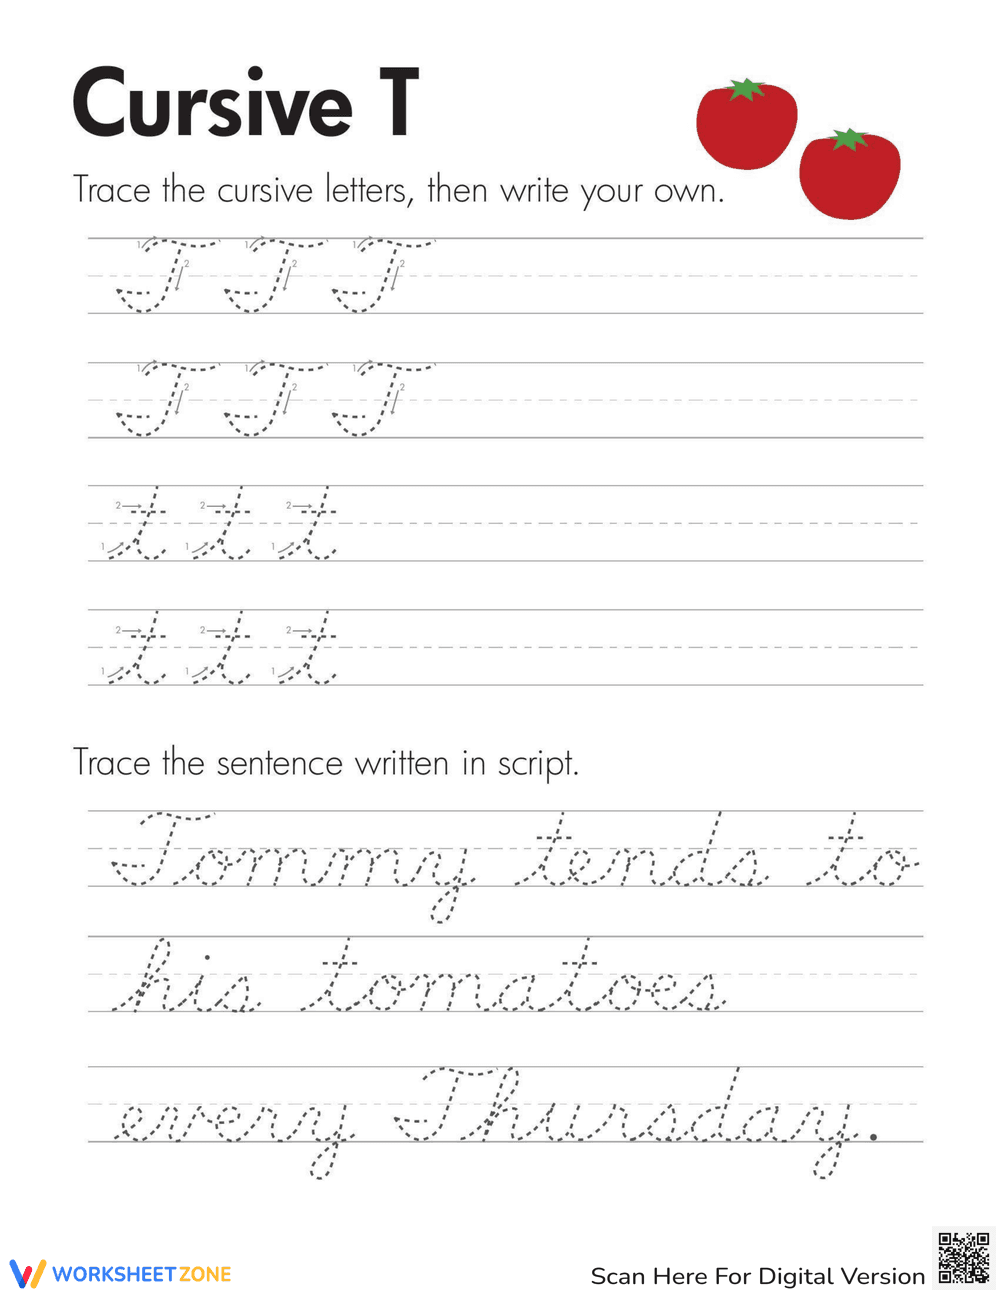 Cursive T
Trace the cursive letters, then write your own.
1 2 T 1 2 T 1 2 T
1 2 T 1 2 T 1 2 T
2 1 t 2 1 t 2 1 t
2 1 t 2 1 t 2 1 t
Trace the sentence written in script.
Tommy tends to
his tomatoes
every Thursday.
WORKSHEETZONE
Scan Here For Digital Version